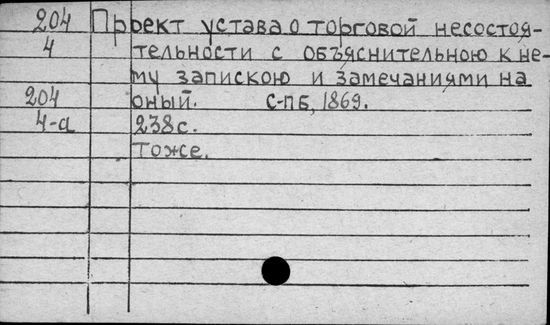 204 Проект устава о торговой несостоя-
4 тельности с объяснительною к не-
му запискою и замечаниями на
204 оный. С-ПБ, 1869.
4-а 238с.
Тоже.